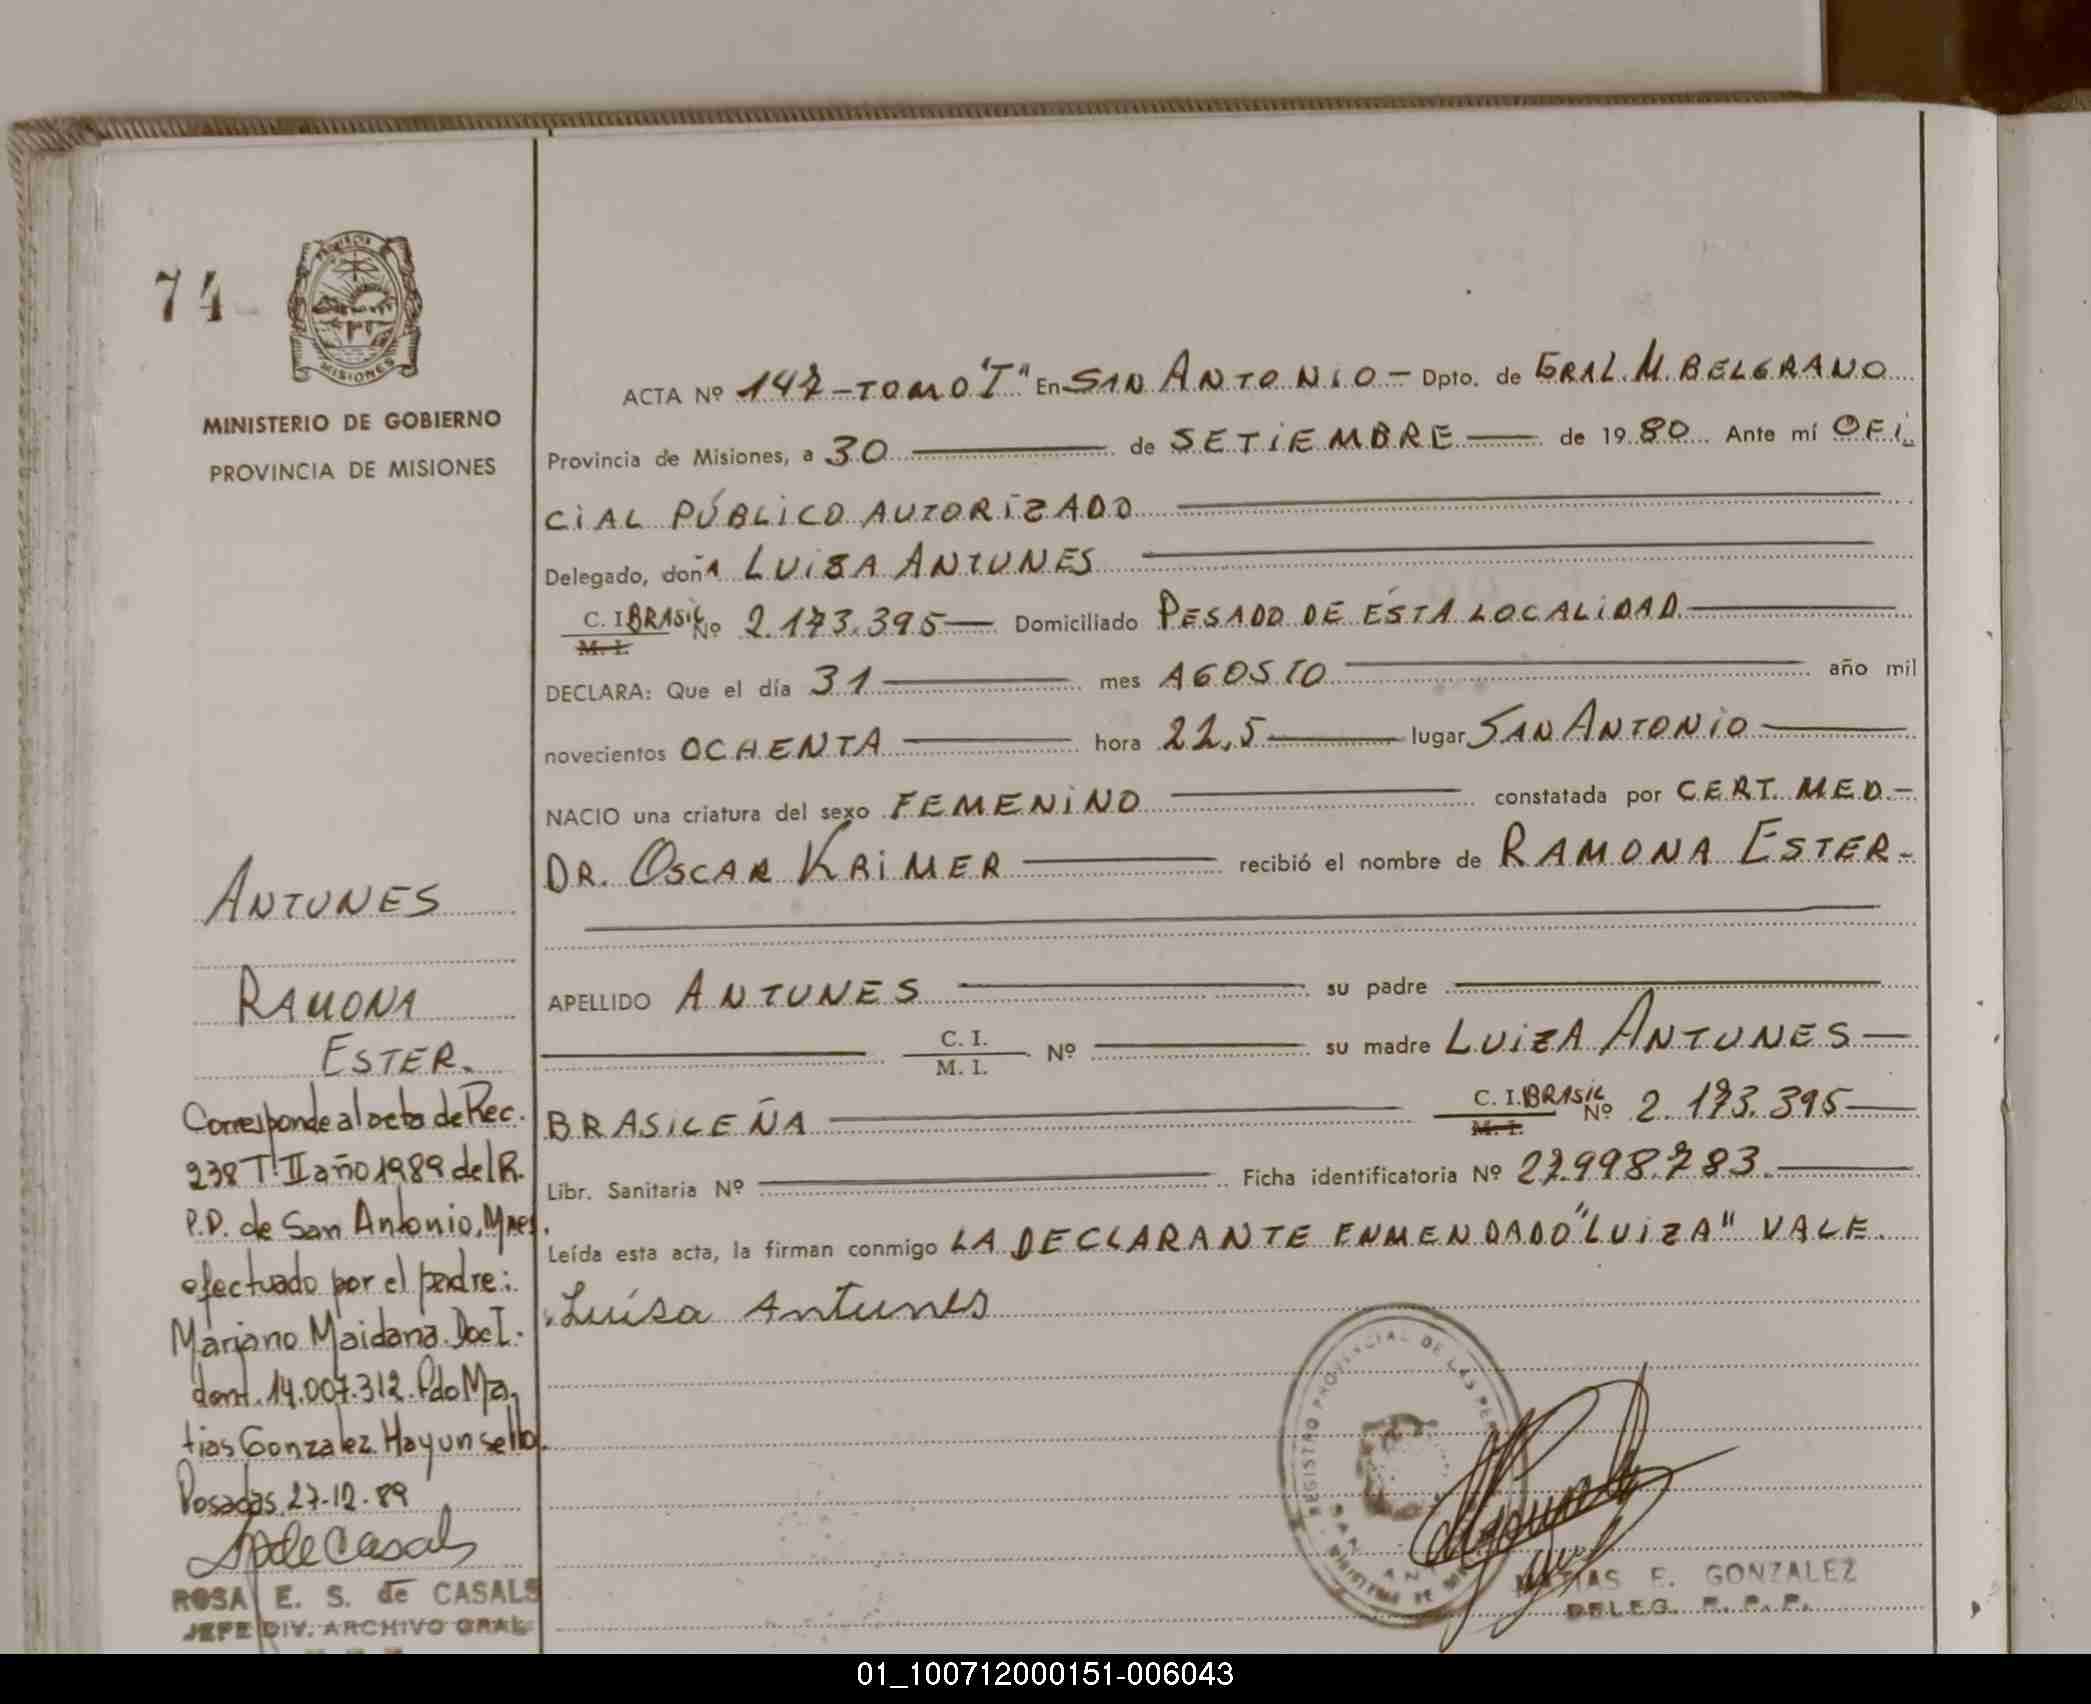 74
PROVINCIA
MISIONES
MINISTERIO DE GOBIERNO
PROVINCIA DE MISIONES
ANTUNES
RAMONA
ESTER.
Corresponde al acta de Rec.
238 T: II año 1989 del R.
P.D. de San Antonio, Mnes.
efectuado por el padre:
Mariano Maidana. Doc I.
dent. 14.007.312. Pdo Ma
tias Gonzalez. Hay un sello.
Posadas, 27-12-89
S de Casals
ROSA E. S. de CASALS
JEFE DIV. ARCHIVO GRAL
ACTA Nº 147 - TOMO "I" En SAN ANTONIO - Dpto. de GRAL. M. BELGRANO
Provincia de Misiones, a 30 de SETIEMBRE de 1980 Ante mí OFI
CIAL PÚBLICO AUTORIZADO
Delegado, doña LUIZA ANTUNES
C. I. BRASIL Nº 2.173.395 Domiciliado PESADO DE ÉSTA LOCALIDAD
M. I.
DECLARA: Que el día 31 mes AGOSTO año mil
novecientos OCHENTA hora 22,5 lugar SAN ANTONIO
NACIO una criatura del sexo FEMENINO constatada por CERT. MED.-
DR. OSCAR KRIMER recibió el nombre de RAMONA ESTER-
APELLIDO ANTUNES su padre
C. I.
M. I. Nº su madre LUIZA ANTUNES
BRASILEÑA C. I. BRASIL Nº 2.173.395
M. I.
Libr. Sanitaria Nº Ficha identificatoria Nº 27.998.783.
Leída esta acta, la firman conmigo LA DECLARANTE ENMENDADO "LUIZA" VALE.
Luisa Antunes
REGISTRO PROVINCIAL DE LAS PER
MATIAS E. GONZALEZ
DELEG. R. P. P.
01_100712000151-006043